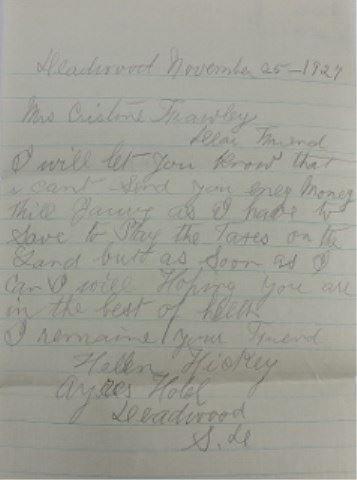 Deadwood November 25-1927
Mrs Cristine Frawley
Dear Friend
I will let you know that
i cant Send you eney Money
till Januy as I have to
Save to Pay the Taxes on the
Land but as Soon as I
Can I will Hoping You are
in the best of helth
I remaine your Friend
Hellen Hickey
Ayres Hotel
Deadwood